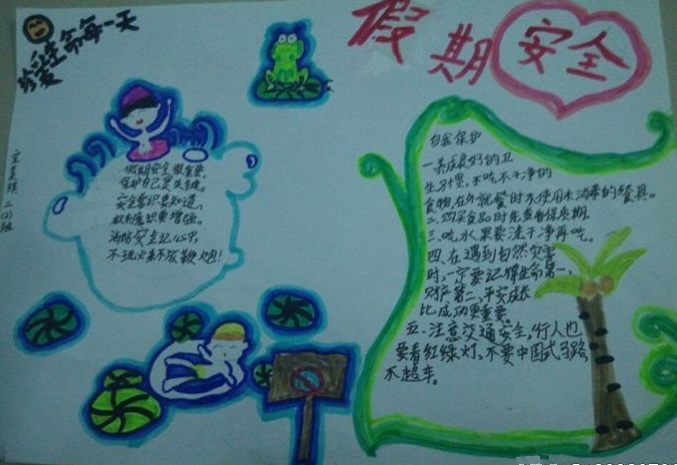 珍爱生命每一天
假期安全
假期安全很重要,
保护自己是关键。
安全常识要知道,
不玩火来不放鞭炮!
自我保护
一、养成良好的卫
生习惯,不吃不干净的
食物,在外就餐时不使用未消毒的餐具。
二、购买食品时先查看保质期。
三、吃水果要洗干净再吃。
四、在遇到自然灾害
时,一定要记得生命第一,
财产第二,平安成长
比成功更重要。
五、注意交通安全,行人也
要看红绿灯,不要中国式马路,
不超车。
二(2)班